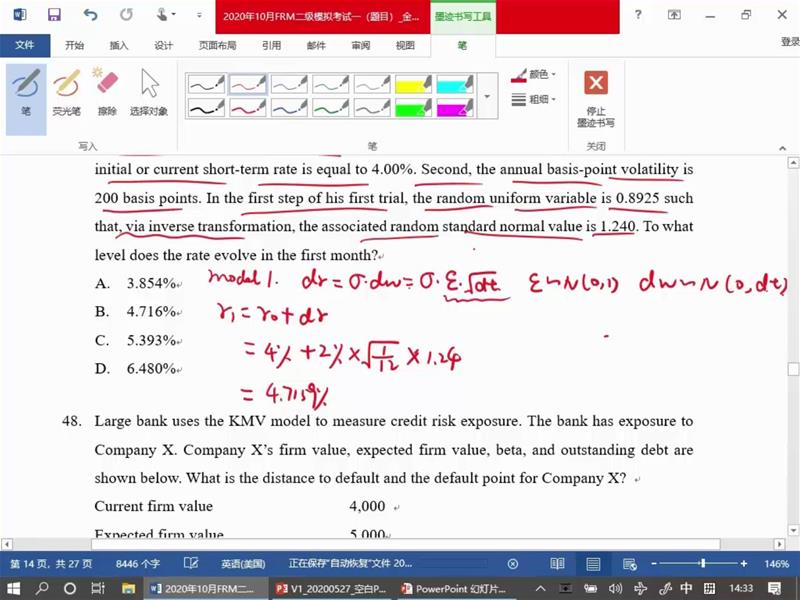 2020年10月FRM二级模拟考试一（题目）_金...
墨迹书写工具
登录
文件 开始 插入 设计 页面布局 引用 邮件 审阅 视图 笔
笔 荧光笔 擦除 选择对象
颜色
粗细
停止
墨迹书写
写入 笔 关闭
initial or current short-term rate is equal to 4.00%. Second, the annual basis-point volatility is
200 basis points. In the first step of his first trial, the random uniform variable is 0.8925 such
that, via inverse transformation, the associated random standard normal value is 1.240. To what
level does the rate evolve in the first month?
A. 3.854%
model 1. dr = σ·dw = σ·ε·√dt ε~N(0,1) dw~N(0,dt)
B. 4.716%
r₁ = r₀ + dr
C. 5.393%
= 4% + 2% × √1/12 × 1.24
D. 6.480%
= 4.7159%
48. Large bank uses the KMV model to measure credit risk exposure. The bank has exposure to
Company X. Company X's firm value, expected firm value, beta, and outstanding debt are
shown below. What is the distance to default and the default point for Company X?
Current firm value 4,000
Expected firm value 5,000
第 14 页，共 27 页 8446 个字 英语(美国) 正在保存"自动恢复"文件 20... 146%
2020年10月FRM二... V1_20200527_空白P... PowerPoint 幻灯片... 中 14:33